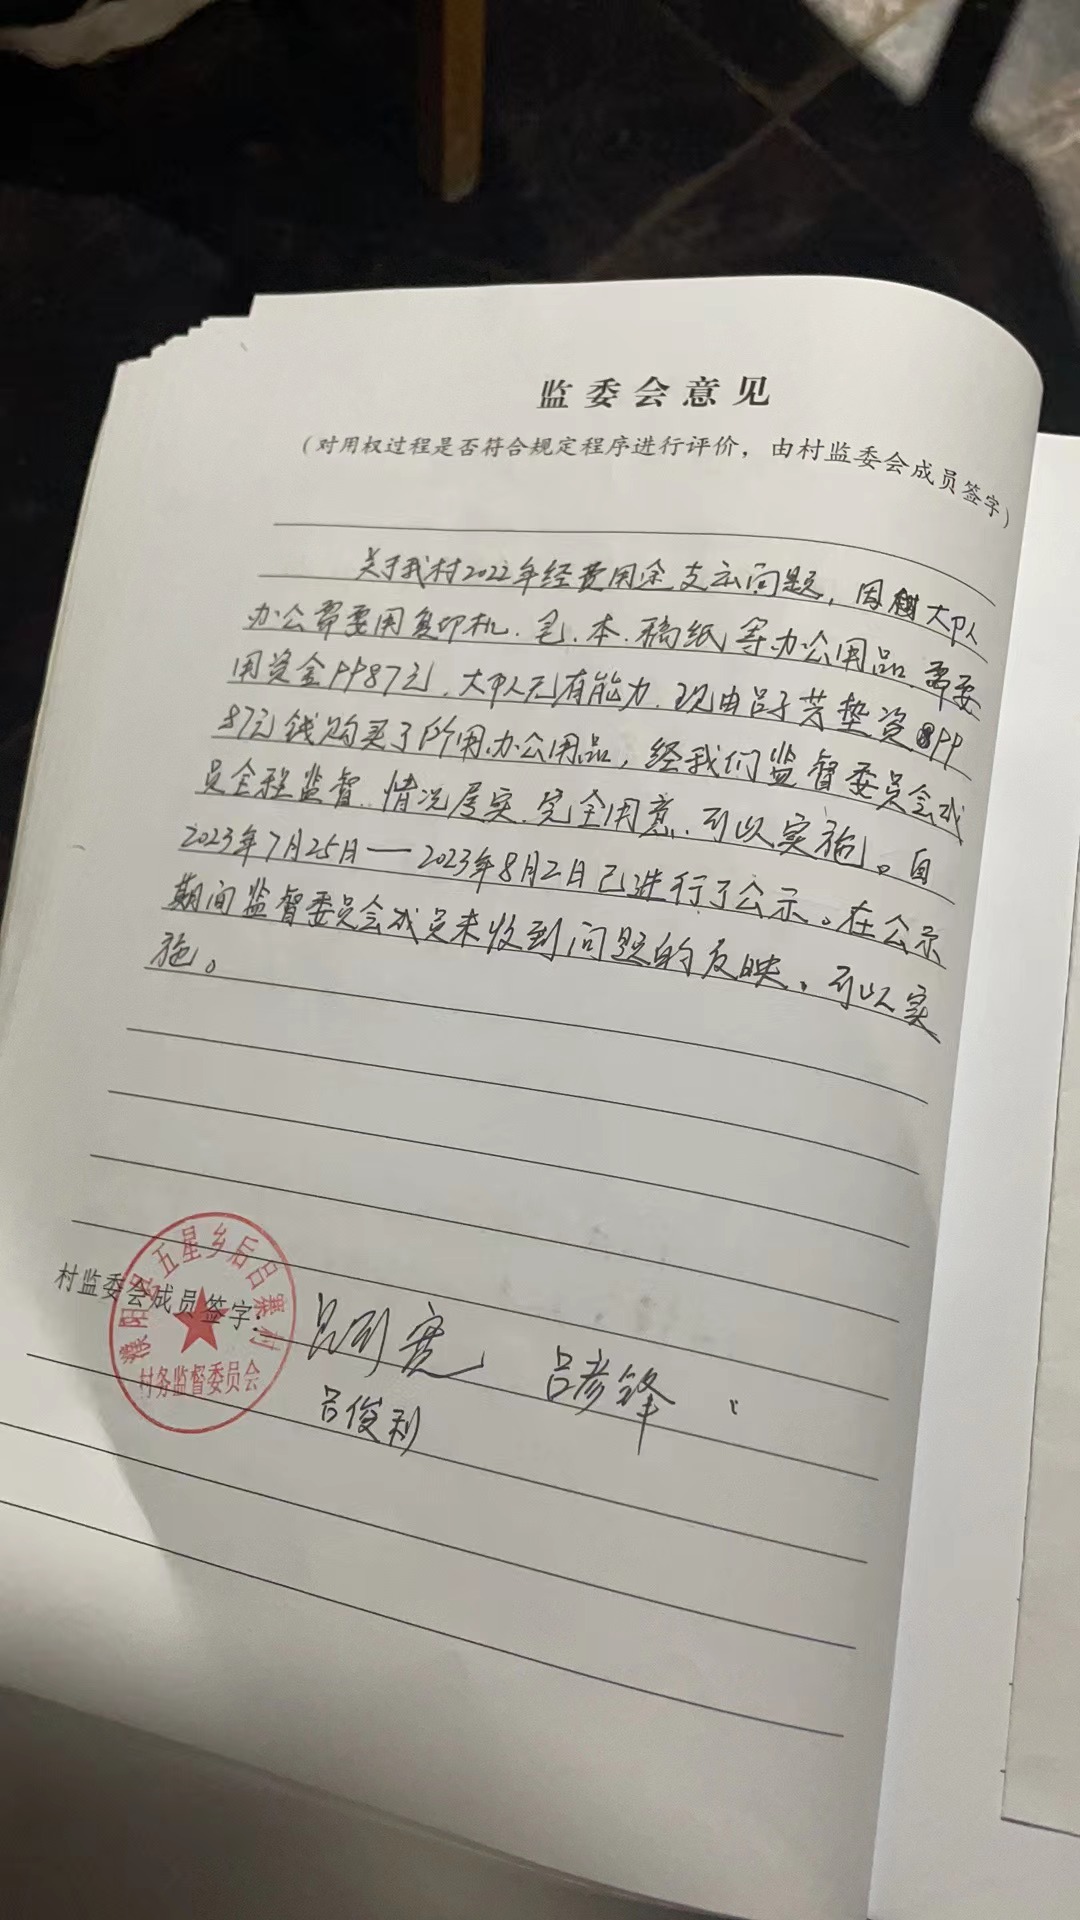 监委会意见
（对用权过程是否符合规定程序进行评价，由村监委会成员签字）
关于我村2022年经费用途支示问题，因大队
办公需要用复印机.笔.本.稿纸等办公用品.需要
用资金9987元.大队无有能力.现由吕子芳垫资99
87元钱购买了所用办公用品，经我们监督委员会成
员全程监督.情况属实.完全用意.可以实施。自
2023年7月25日—2023年8月2日已进行了公示。在公示
期间监督委员会成员未收到问题的反映。可以实
施。
村监委会成员签字：吕 吕彦锋
吕俊利
濮阳县五星乡后吕寨村
村务监督委员会